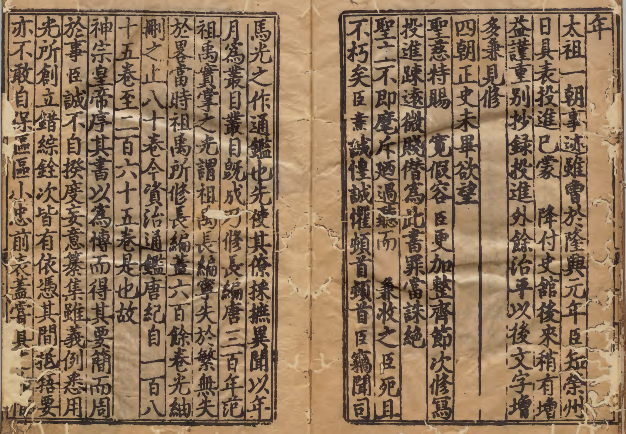 年
太祖一朝事迹雖曾於隆興元年臣知榮州
日具表投進已蒙　降付史館後來稍有增
益謹重別抄録投進外餘治平以後文字增
多兼見修
四朝正史未畢欲望
聖慈特賜　寛假容臣更加整齊節次修寫
投進踈遠微賤僭爲此書罪當誅絶
聖上不即麾斥　兼收之臣死且
不朽矣臣燾誠惶誠懼頓首頓首臣竊聞司
馬光之作通鑑也先使其僚採摭異聞以年
月爲叢目叢目既成乃修長編唐三百年范
祖禹實掌之光謂祖禹長編寧失於繁無失
於畧當時祖禹所修長編蓋六百餘卷光紬
刪之止八十卷今資治通鑑唐紀自一百八
十五卷至二百六十五卷是也故
神宗皇帝序其書以爲博而得其要簡而周
於事臣誠不自揆度妄意纂集雖義例悉用
光所創立錯綜銓次皆有依憑其間抵牾要
亦不敢自保區區小忠前表蓋嘗具